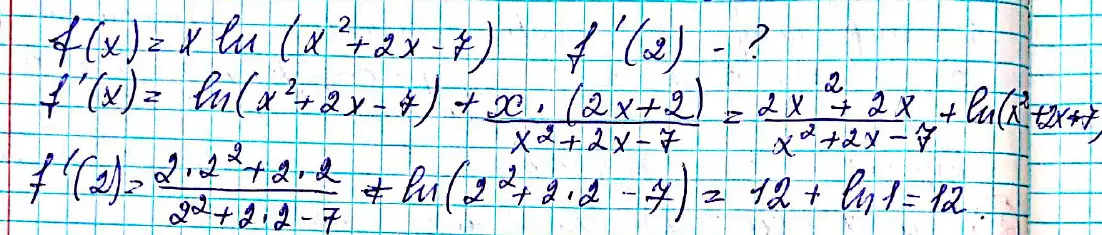 f(x) = x ln (x² + 2x - 7) f'(2) - ?
f'(x) = ln(x² + 2x - 7) + x · (2x + 2) / x² + 2x - 7 = 2x² + 2x / x² + 2x - 7 + ln(x² + 2x + 7)
f'(2) = 2 · 2² + 2 · 2 / 2² + 2 · 2 - 7 + ln(2² + 2 · 2 - 7) = 12 + ln 1 = 12.